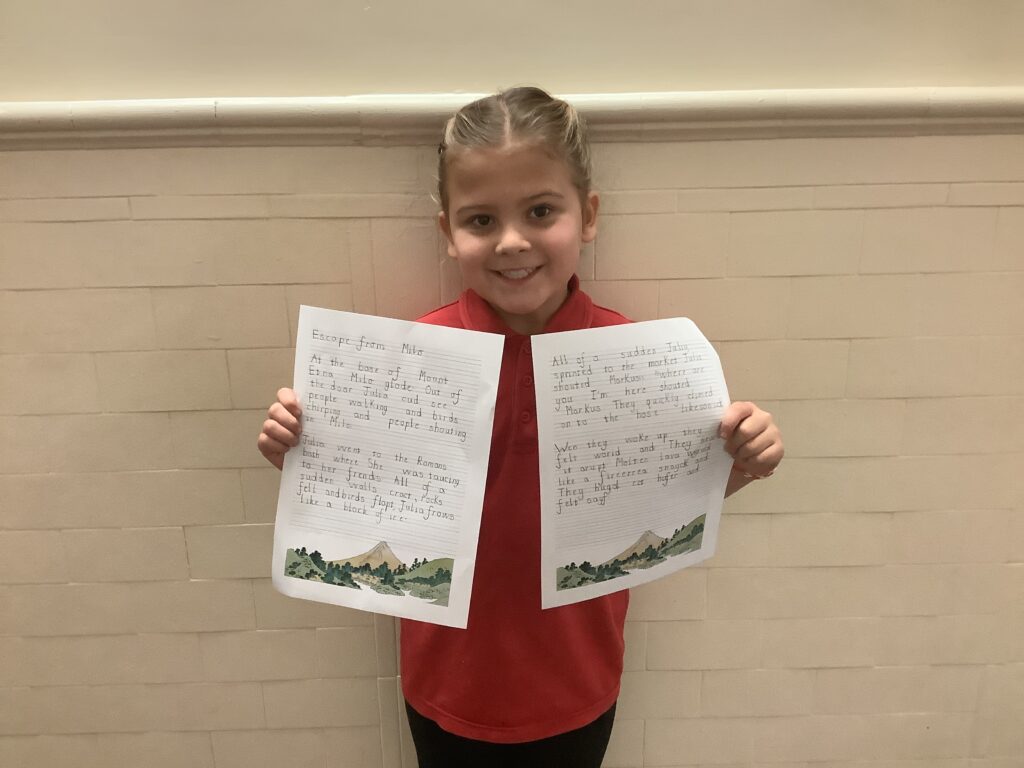 Escape from Milo
At the base of Mount
Etna Milo glode. Out of
the door Julia cud see
people walking and birds
chirping and people shouting
in Milo.
Julia went to the Romans
bath where She was taucing
to her frendis All of a
sudden walls cract, rocks
felt and birds flapt, Julia frows
like a block of ice.
All of a sudden Julia
sprinted to the market Julia
shouted Markus "where are
you I'm here shouted
Markus They quickly climed
on to the
Wen they woke up they
felt worid and They
it erupt Molten lava
like a
They huged
felt